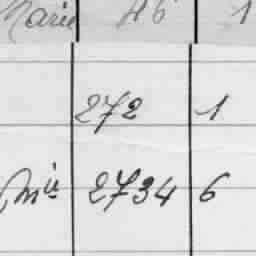 Marie 46 1
272 1
2734 6